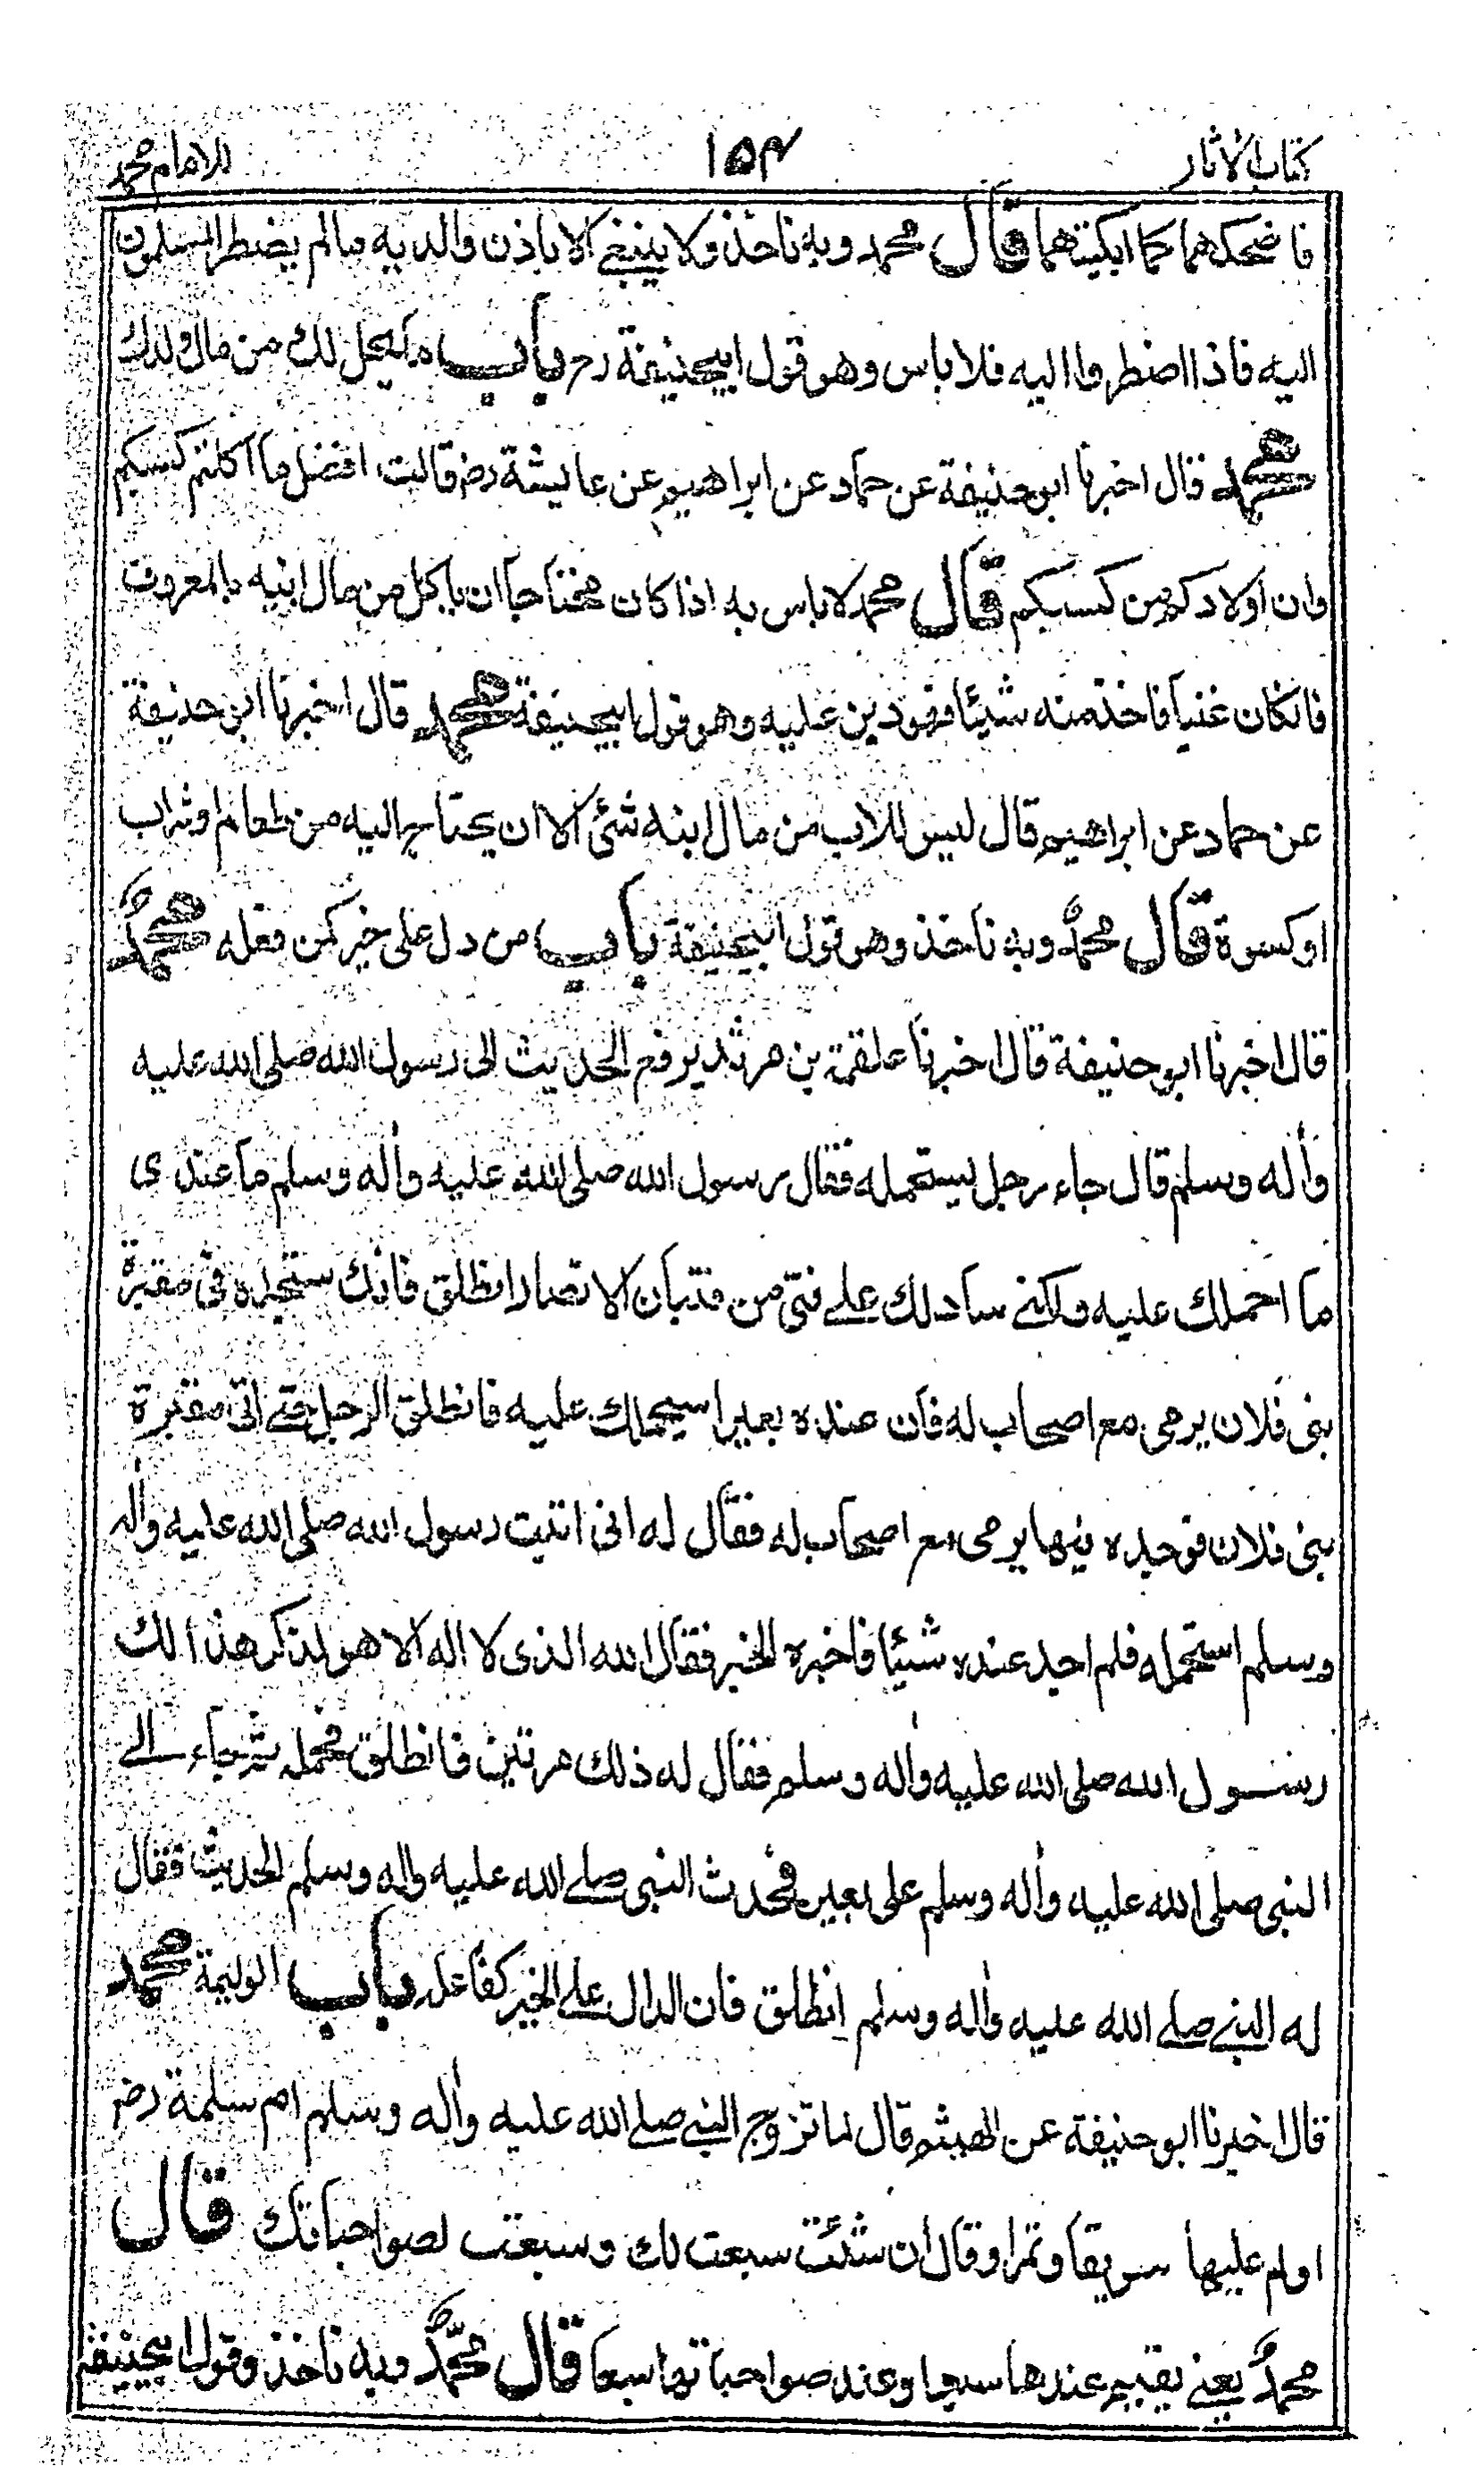 كتاب الآثار ١٥٣ للامام محمد
فاضحكهما كما ابكيتهما قال محمد وبه ناخذ ولا ينبغي الا باذن والديه مالم يضطر المسلمون
اليه فاذا اضطروا اليه فلا باس وهو قول ابيحنيفة رح باب ما يحل لك من مال ولدك
محمد قال اخبرنا ابو حنيفة عن حماد عن ابراهيم عن عايشة رض قالت افضل ما اكلتم كسبكم
وان اولادكم من كسبكم قال محمد لا باس به اذا كان محتاجا ان ياكل من مال ابنه بالمعروف
فانكان غنيا فاخذ منه شيئا فهو دين عليه وهو قول ابيحنيفة محمد قال اخبرنا ابو حنيفة
عن حماد عن ابراهيم قال ليس للاب من مال ابنه شئ الا ان يحتاج اليه من طعام او شراب
او كسوة قال محمد وبه ناخذ وهو قول ابيحنيفة باب من دل على خير كمن فعله محمد
قال اخبرنا ابو حنيفة قال اخبرنا علقمة بن مرثد يرفع الحديث الى رسول الله صلى الله عليه
واٰله وسلم قال جاء رجل ليستحمله فقال رسول الله صلى الله عليه واٰله وسلم ما عندى
ما احملك عليه ولكني سادلك على فتى من فتيان الانصار انطلق فانك ستجده فى مقبرة
بنى فلان يرمى مع اصحاب له فان عنده بعيرا سيحملك عليه فانطلق الرجل حتى اتى مقبرة
بنى فلان فوجده فيها يرمى مع اصحاب له فقال له انى اتيت رسول الله صلى الله عليه واٰله
وسلم استحمله فلم اجد عنده شيئا فاخبره الخبر فقال الله الذى لا اله الا هو لذكر هذا لك
رسول الله صلى الله عليه واٰله وسلم فقال له ذلك مرتين فانطلق فحمله ثم جاء الى
النبى صلى الله عليه واٰله وسلم على بعير فحدث النبى صلى الله عليه واٰله وسلم الحديث فقال
له النبى صلى الله عليه واٰله وسلم انطلق فان الدال على الخير كفاعله باب الوليمة محمد
قال اخبرنا ابو حنيفة عن الهيثم قال لما تزوج النبى صلى الله عليه واٰله وسلم ام سلمة رض
اولم عليها سويقا وتمرا وقال ان شئت سبعت لك وسبعت لصواحباتك قال
محمد يعنى يقيم عندها سبعا وعند صواحباتها سبعا قال محمد وبه ناخذ وقول ابيحنيفة